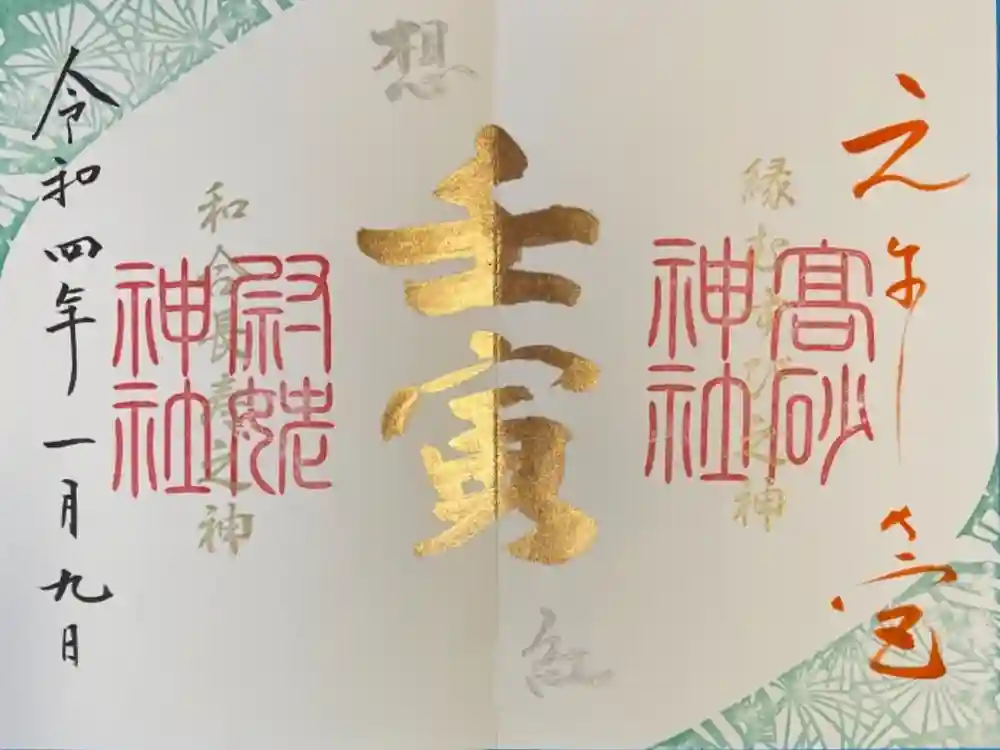 縁むすび之神
高砂神社
想
壬寅
紅
和合長寿之神
尉姥神社
令和四年一月九日